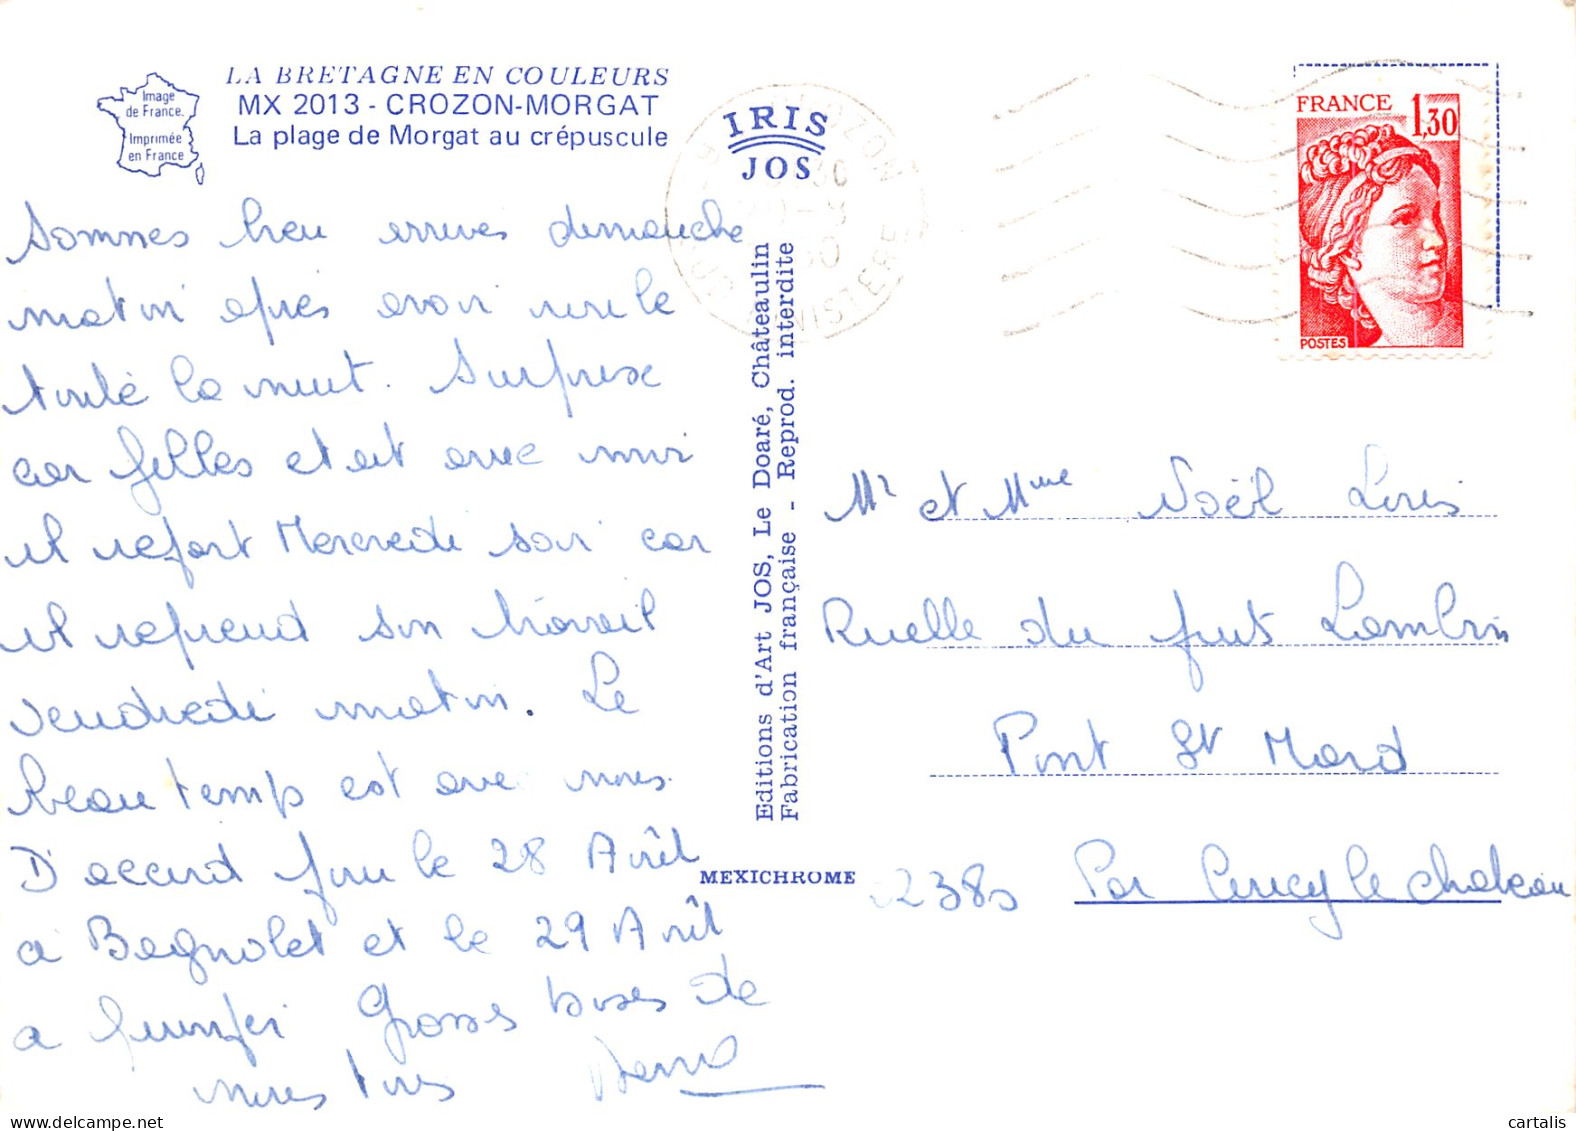 LA BRETAGNE EN COULEURS
MX 2013 - CROZON-MORGAT
La plage de Morgat au crépuscule
Image
de France.
Imprimée
en France
IRIS
JOS
FRANCE 1,30
POSTES
Sommes bien arrivés dimanche
matin après avoir roulé
toute la nuit. Surprise
car Gilles etait avec moi
il repart Mercredi soir car
il reprend son travail
vendredi matin. Le
beau temps est avec nous.
D'accord pour le 28 Avril
a Bagnolet et le 29 Avril
a Grosses bises de
nous tous
Editions d'Art JOS, Le Doaré, Châteaulin
Fabrication française - Reprod. interdite
MEXICHROME
Mr et Mme Noël Louis
Ruelle du puits Lambin
Pont St Mard
02380 Par Coucy le chateau
cartalis